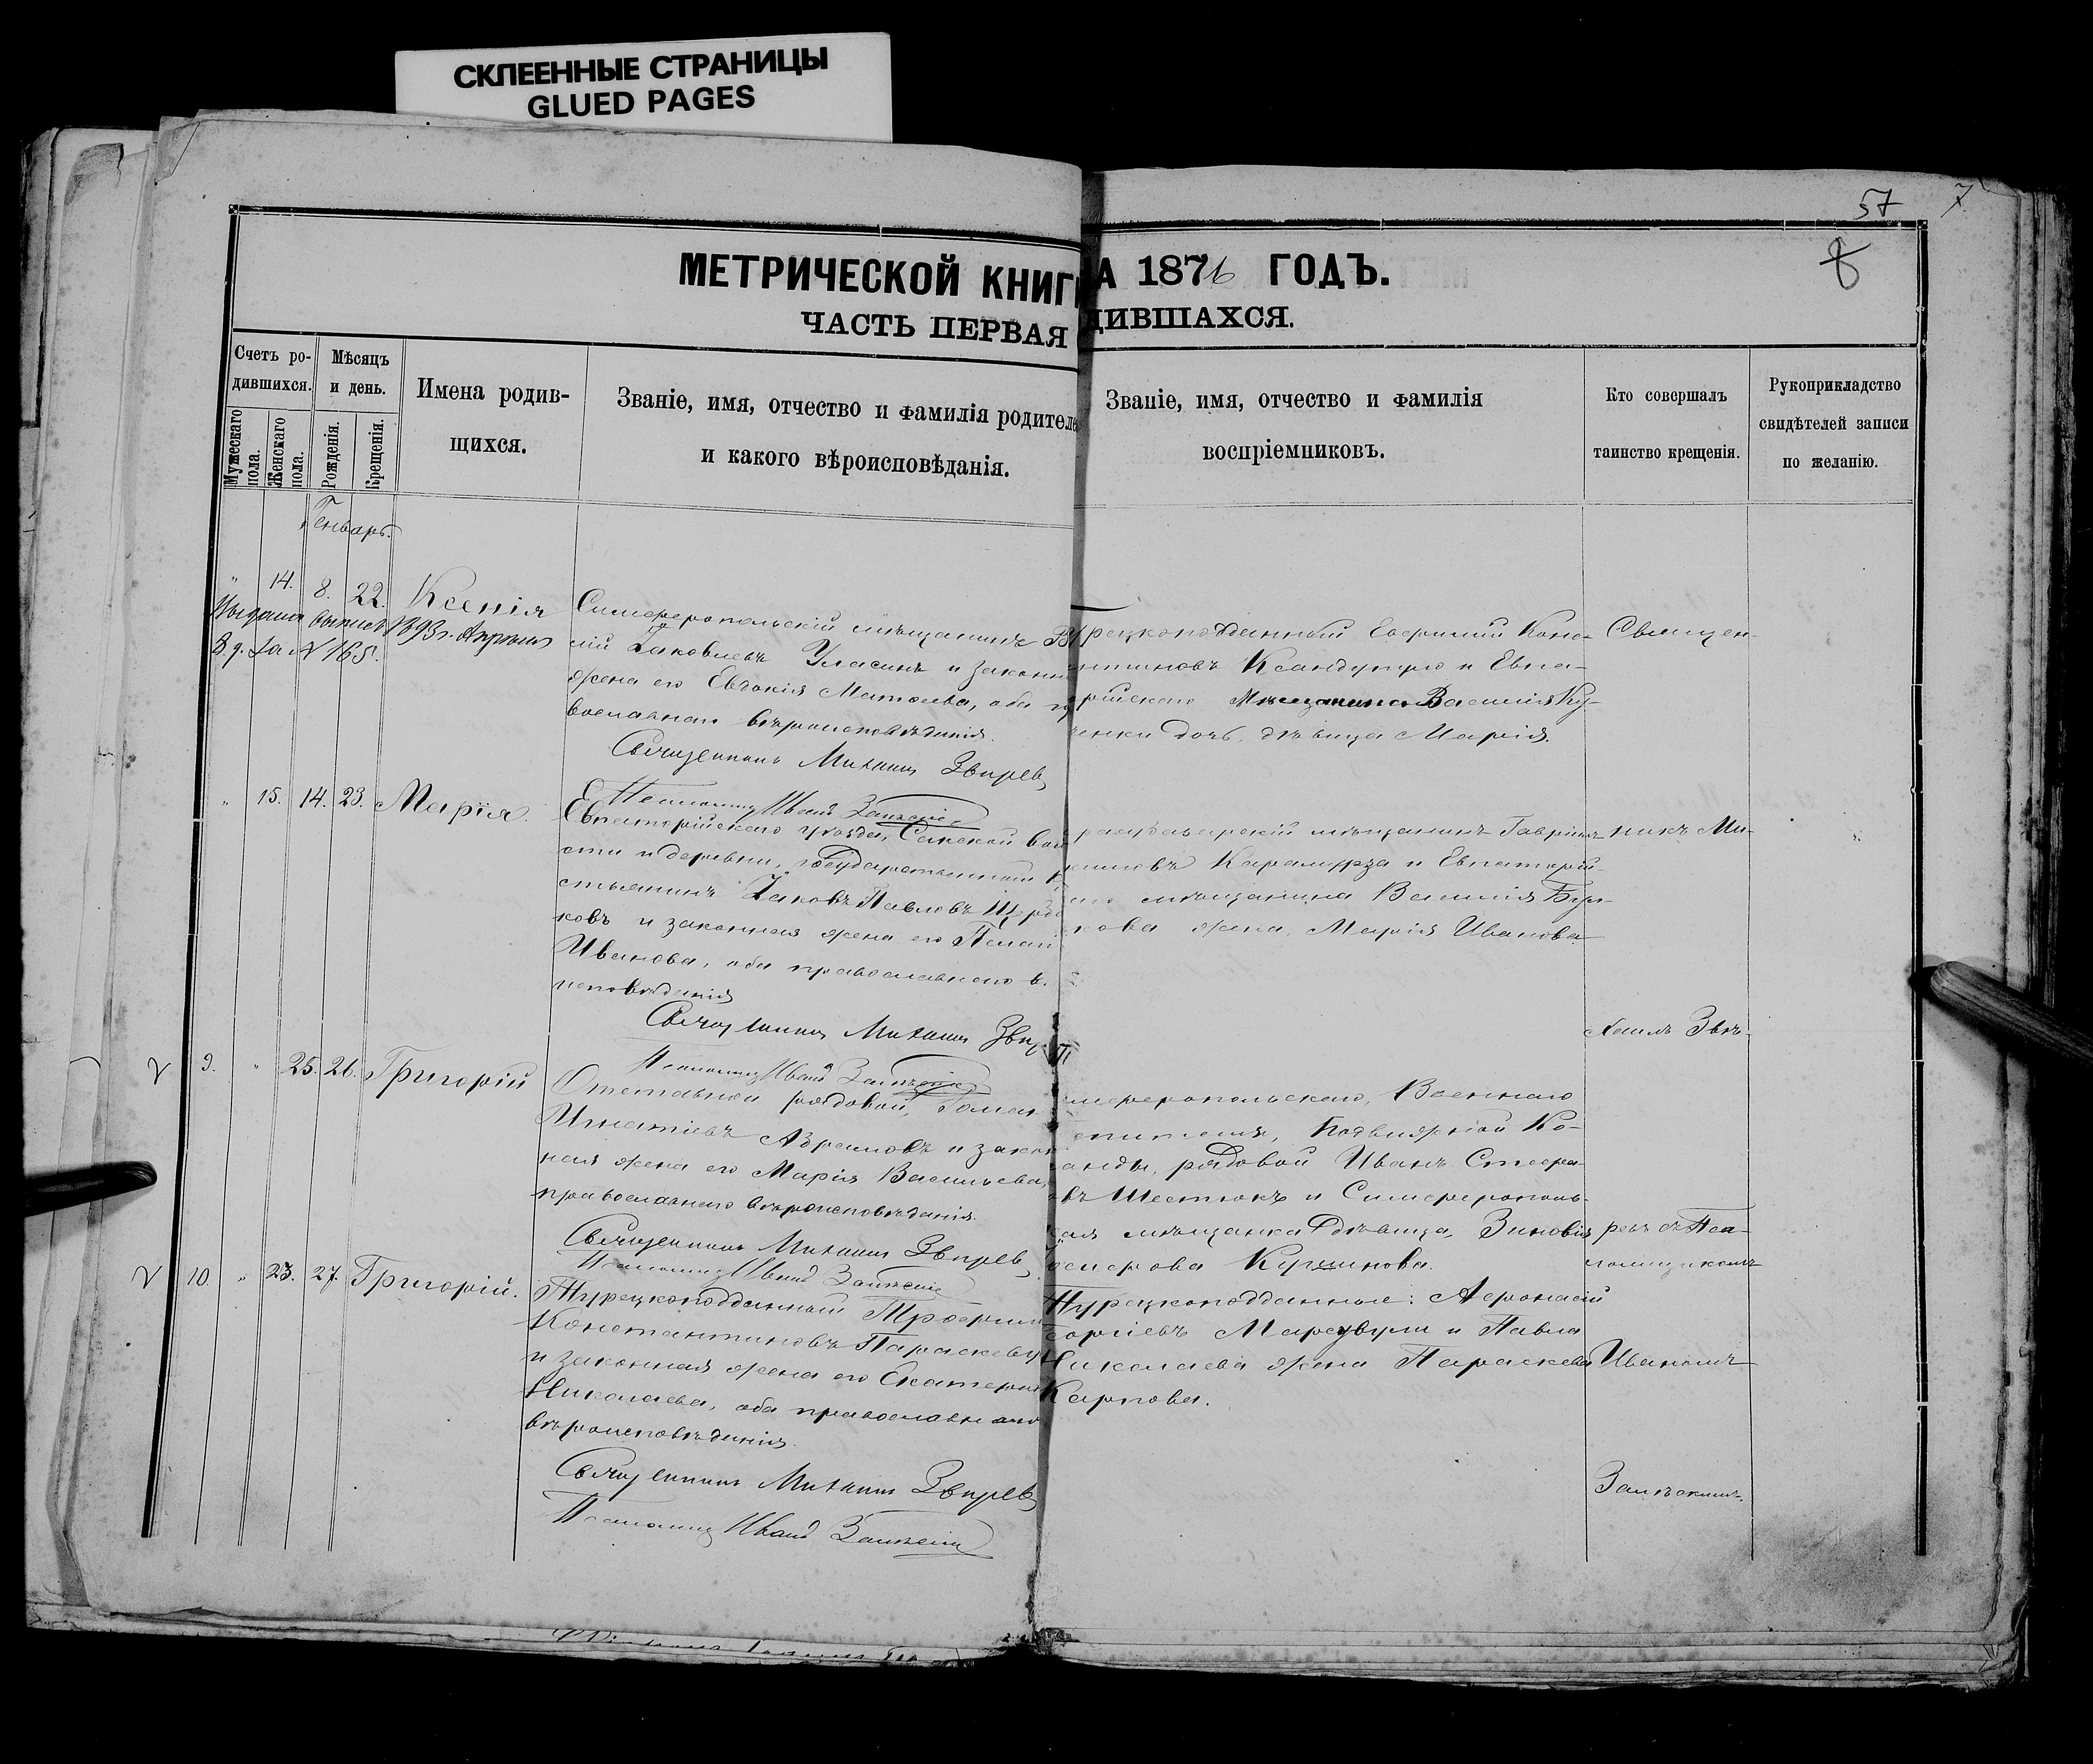 СКЛЕЕННЫЕ СТРАНИЦЫ
GLUED PAGES
57 7
8
МЕТРИЧЕСКОЙ КНИГ
А 1876 ГОДЪ.
ЧАСТЬ ПЕРВАЯ
ДИВШАХСЯ.
Счетъ ро-
дившихся.
Мужескаго пола.
Женскаго пола.
Мѣсяцъ
и день.
Рожденія.
Крещенія.
Имена родив-
шихся.
Званіе, имя, отчество и фамилія родителе
и какого вѣроисповѣданія.
Званіе, имя, отчество и фамилія
воспріемниковъ.
Кто совершалъ
таинство крещенія.
Рукоприкладство
свидѣтелей записи
по желанію.
Генварь.
" 14. 8. 22. Ксенія
Выдана выпись 1893 г. Апрѣля
8 д. за № 165.
Симферопольскій мѣщанинъ
сій Іаковлевъ Уласинъ и законн
жена его Евдокія Матѳеева, оба
вославнаго вѣроисповѣданія.
Священникъ Михаилъ Звѣревъ
рецкоподданный Евфимій Конс-
нтиновъ и Евпа-
рійскаго Мѣщанина Василія Ку-
енки дочь, дѣвица Марія.
Священ-
" 15. 14. 23. Марія.
Псаломщ Иванъ
Евпаторійскаго уѣзда, Сакской вол
сти и деревни, государственный к
стьянинъ Іаковъ Павловъ Щерба
ковъ и законная жена его Пелаг
Иванова, оба православнаго в.
исповѣданія
Священникъ Михаилъ Звѣ
мѣщанинъ Гавріилъ
и Евпаторій-
мѣщанина Василія
кова жена, Марія Иванова
никъ Ми-
хаилъ Звѣ-
9. " 25. 26. Григорій
Псаломщ Иванъ
Отставной рядовой, Роман
Игнатіевъ Абрамовъ и закон
ная жена его Марія Васильева,
православнаго вѣроисповѣданія.
Священникъ Михаилъ Звѣревъ
Псаломщ Иванъ
мферопольскаго, Военнаго
Подвижной Ко-
анды, рядовой Иванъ Стефа-
овъ Шестюкъ и Симферополь-
кая мѣщанка дѣвица, Зиновія
ревъ съ Пса-
ломщикомъ
10. " 23. 27. Григорій.
Турецкоподданный
Константиновъ Параскеву
и законная жена его Екатерин
Николаева, оба православнаго
вѣроисповѣданія.
Священникъ Михаилъ Звѣревъ
Псаломщ Иванъ
Турецкоподданные: Аѳонасій
еоргіевъ и Павла
Николаева жена Параскева
Карпова.
Иваномъ